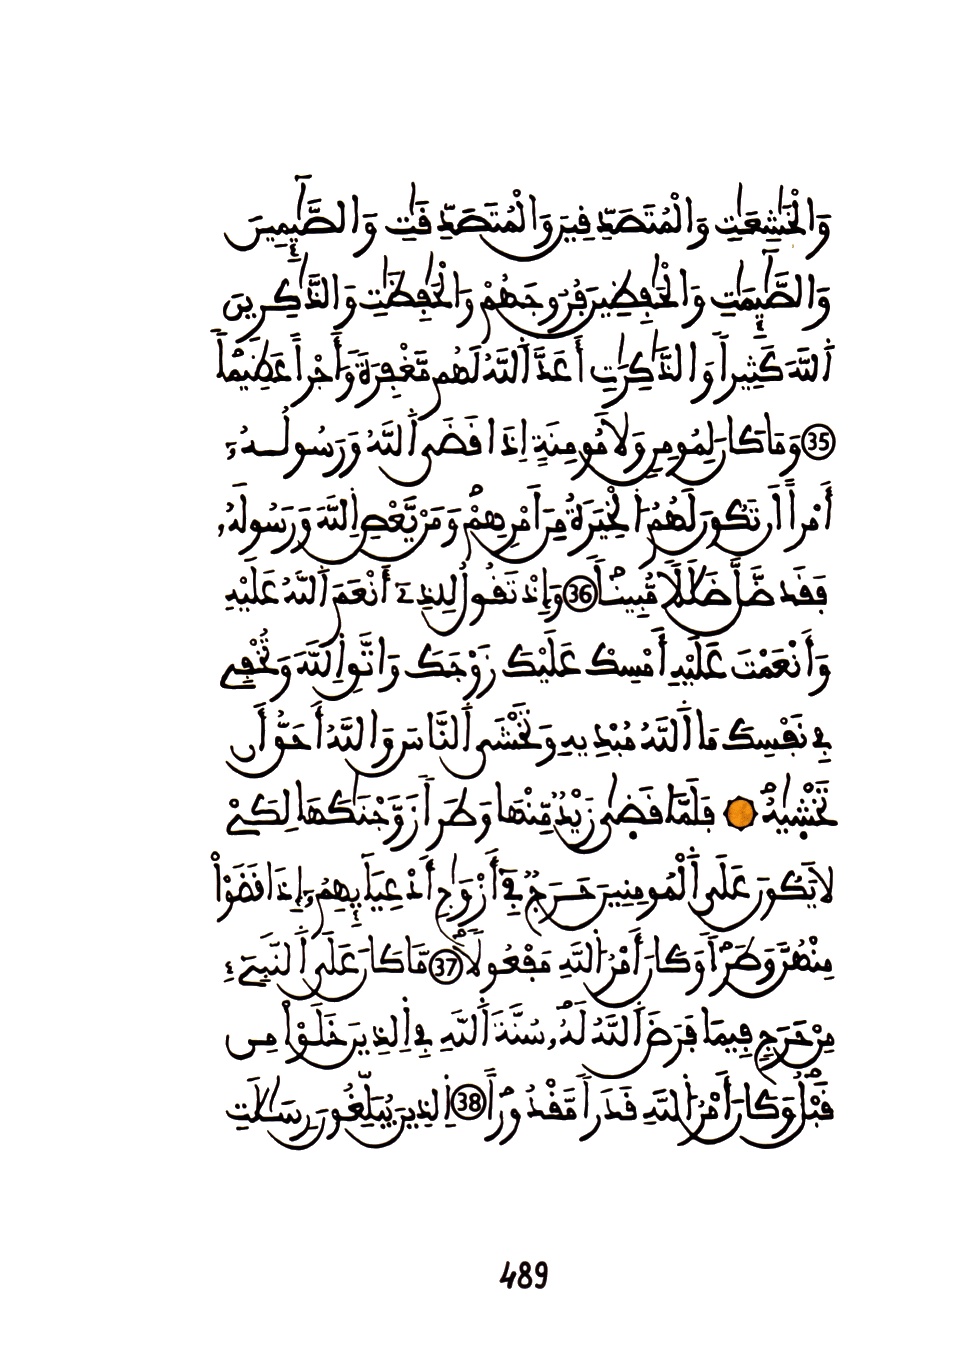 وَالْخَٰشِعَٰتِ وَالْمُتَصَدِّقِينَ وَالْمُتَصَدِّقَٰتِ وَالصَّٰٓئِمِينَ
وَالصَّٰٓئِمَٰتِ وَالْحَٰفِظِينَ فُرُوجَهُمْ وَالْحَٰفِظَٰتِ وَالذَّٰكِرِينَ
اَللَّهَ كَثِيراً وَالذَّٰكِرَٰتِ أَعَدَّ اَللَّهُ لَهُم مَّغْفِرَةً وَأَجْراً عَظِيماً
35 وَمَا كَانَ لِمُومِنٍ وَلَا مُومِنَةٍ إِذَا قَضَى اَللَّهُ وَرَسُولُهُۥٓ
أَمْراً أَن تَكُونَ لَهُمُ اُلْخِيَرَةُ مِنَ اَمْرِهِمْ وَمَنْ يَّعْصِ اِللَّهَ وَرَسُولَهُۥ
فَقَد ضَّلَّ ضَلَٰلاً مُّبِيناً 36 وَإِذْ تَقُولُ لِلذِےٓ أَنْعَمَ اَللَّهُ عَلَيْهِ
وَأَنْعَمْتَ عَلَيْهِ أَمْسِكْ عَلَيْكَ زَوْجَكَ وَاتَّقِ اِللَّهَ وَتُخْفِے
فِے نَفْسِكَ مَا اَللَّهُ مُبْدِيهِ وَتَخْشَى اَلنَّاسَ وَاللَّهُ أَحَقُّ أَن
تَخْشَىٰهُ فَلَمَّا قَضَىٰ زَيْدٌ مِّنْهَا وَطَراً زَوَّجْنَٰكَهَا لِكَےْ
لَا يَكُونَ عَلَى اَلْمُومِنِينَ حَرَجٌ فِےٓ أَزْوَٰجِ أَدْعِيَآئِهِمُۥٓ إِذَا قَضَوْاْ
مِنْهُنَّ وَطَراً وَكَانَ أَمْرُ اُللَّهِ مَفْعُولاً 37 مَّا كَانَ عَلَى اَلنَّبِےٓءِ
مِنْ حَرَجٍ فِيمَا فَرَضَ اَللَّهُ لَهُۥ سُنَّةَ اَللَّهِ فِے اِلذِينَ خَلَوْاْ مِن
قَبْلُ وَكَانَ أَمْرُ اُللَّهِ قَدَراً مَّقْدُوراً 38 اِلذِينَ يُبَلِّغُونَ رِسَٰلَٰتِ
489